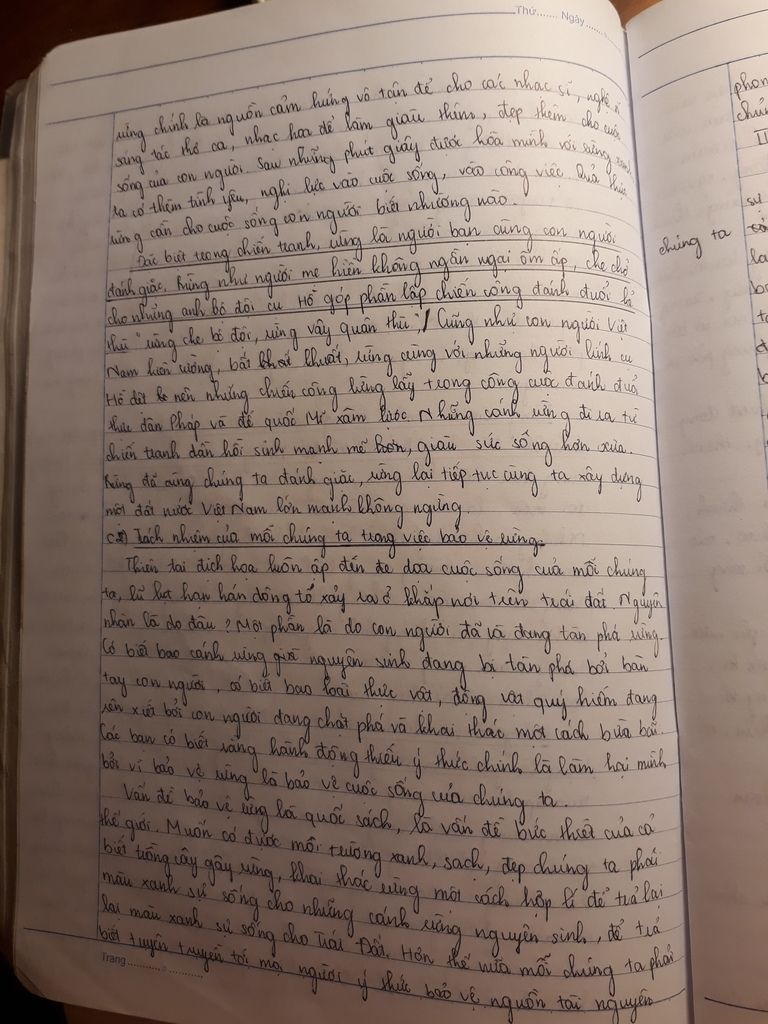 Thứ....... Ngày.......
rừng chính là nguồn cảm hứng vô tận để cho các nhạc sĩ, nghệ sĩ
sáng tác thơ ca, nhạc hoạ để làm giàu thêm, đẹp thêm cho cuộc
sống của con người. Sau những phút giây được hòa mình với rừng xanh
ta có thêm tình yêu, nghị lực vào cuộc sống, vào công việc. Quả thực
rừng cần cho cuộc sống con người biết nhường nào.
Đặc biệt trong chiến tranh, rừng là người bạn cùng con người
đánh giặc. Rừng như người mẹ hiền không ngần ngại ôm ấp, che chở
cho những anh bộ đội cụ Hồ góp phần lập chiến công đánh đuổi kẻ
thù "rừng che bộ đội, rừng vây quân thù", / Cũng như con người Việt
Nam kiên cường, bất khuất, rừng cùng với những người lính cụ
Hồ đã nên những chiến công lừng lẫy trong công cuộc đánh đuổi
thực dân Pháp và đế quốc Mĩ xâm lược. Những cánh rừng đi ra từ
chiến tranh dần hồi sinh mạnh mẽ hơn, giàu sức sống hơn xưa.
Rừng đã cùng chúng ta đánh giặc, rừng lại tiếp tục cùng ta xây dựng
một đất nước Việt Nam lớn mạnh không ngừng.
Trách nhiệm của mỗi chúng ta trong việc bảo vệ rừng.
Thiên tai địch họa luôn ập đến đe dọa cuộc sống của mỗi chúng
ta, lũ lụt hạn hán động tố xảy ra ở khắp nơi trên trái đất. Nguyên
nhân là do đâu? Một phần là do con người đã và đang tàn phá rừng.
Có biết bao cánh rừng nguyên sinh đang bị tàn phá bởi bàn
tay con người, có biết bao loài thực vật, động vật quý hiếm đang
rên xiết bởi con người đang chặt phá và khai thác một cách bừa bãi.
Các bạn có biết rằng hành động thiếu ý thức chính là làm hại mình
bởi vì bảo vệ rừng là bảo vệ cuộc sống của chúng ta.
Vấn đề bảo vệ rừng là quốc sách, là vấn đề bức thiết của cả
thế giới. Muốn có được môi trường xanh, sạch, đẹp chúng ta phải
biết trồng cây gây rừng, khai thác rừng một cách hợp lí để trả lại
màu xanh sự sống cho những cánh rừng nguyên sinh, để trả
lại màu xanh sự sống cho Trái Đất. Hơn thế nữa mỗi chúng ta phải
biết tuyên truyền tới mọi người ý thức bảo vệ nguồn tài nguyên
Trang...................
chúng ta